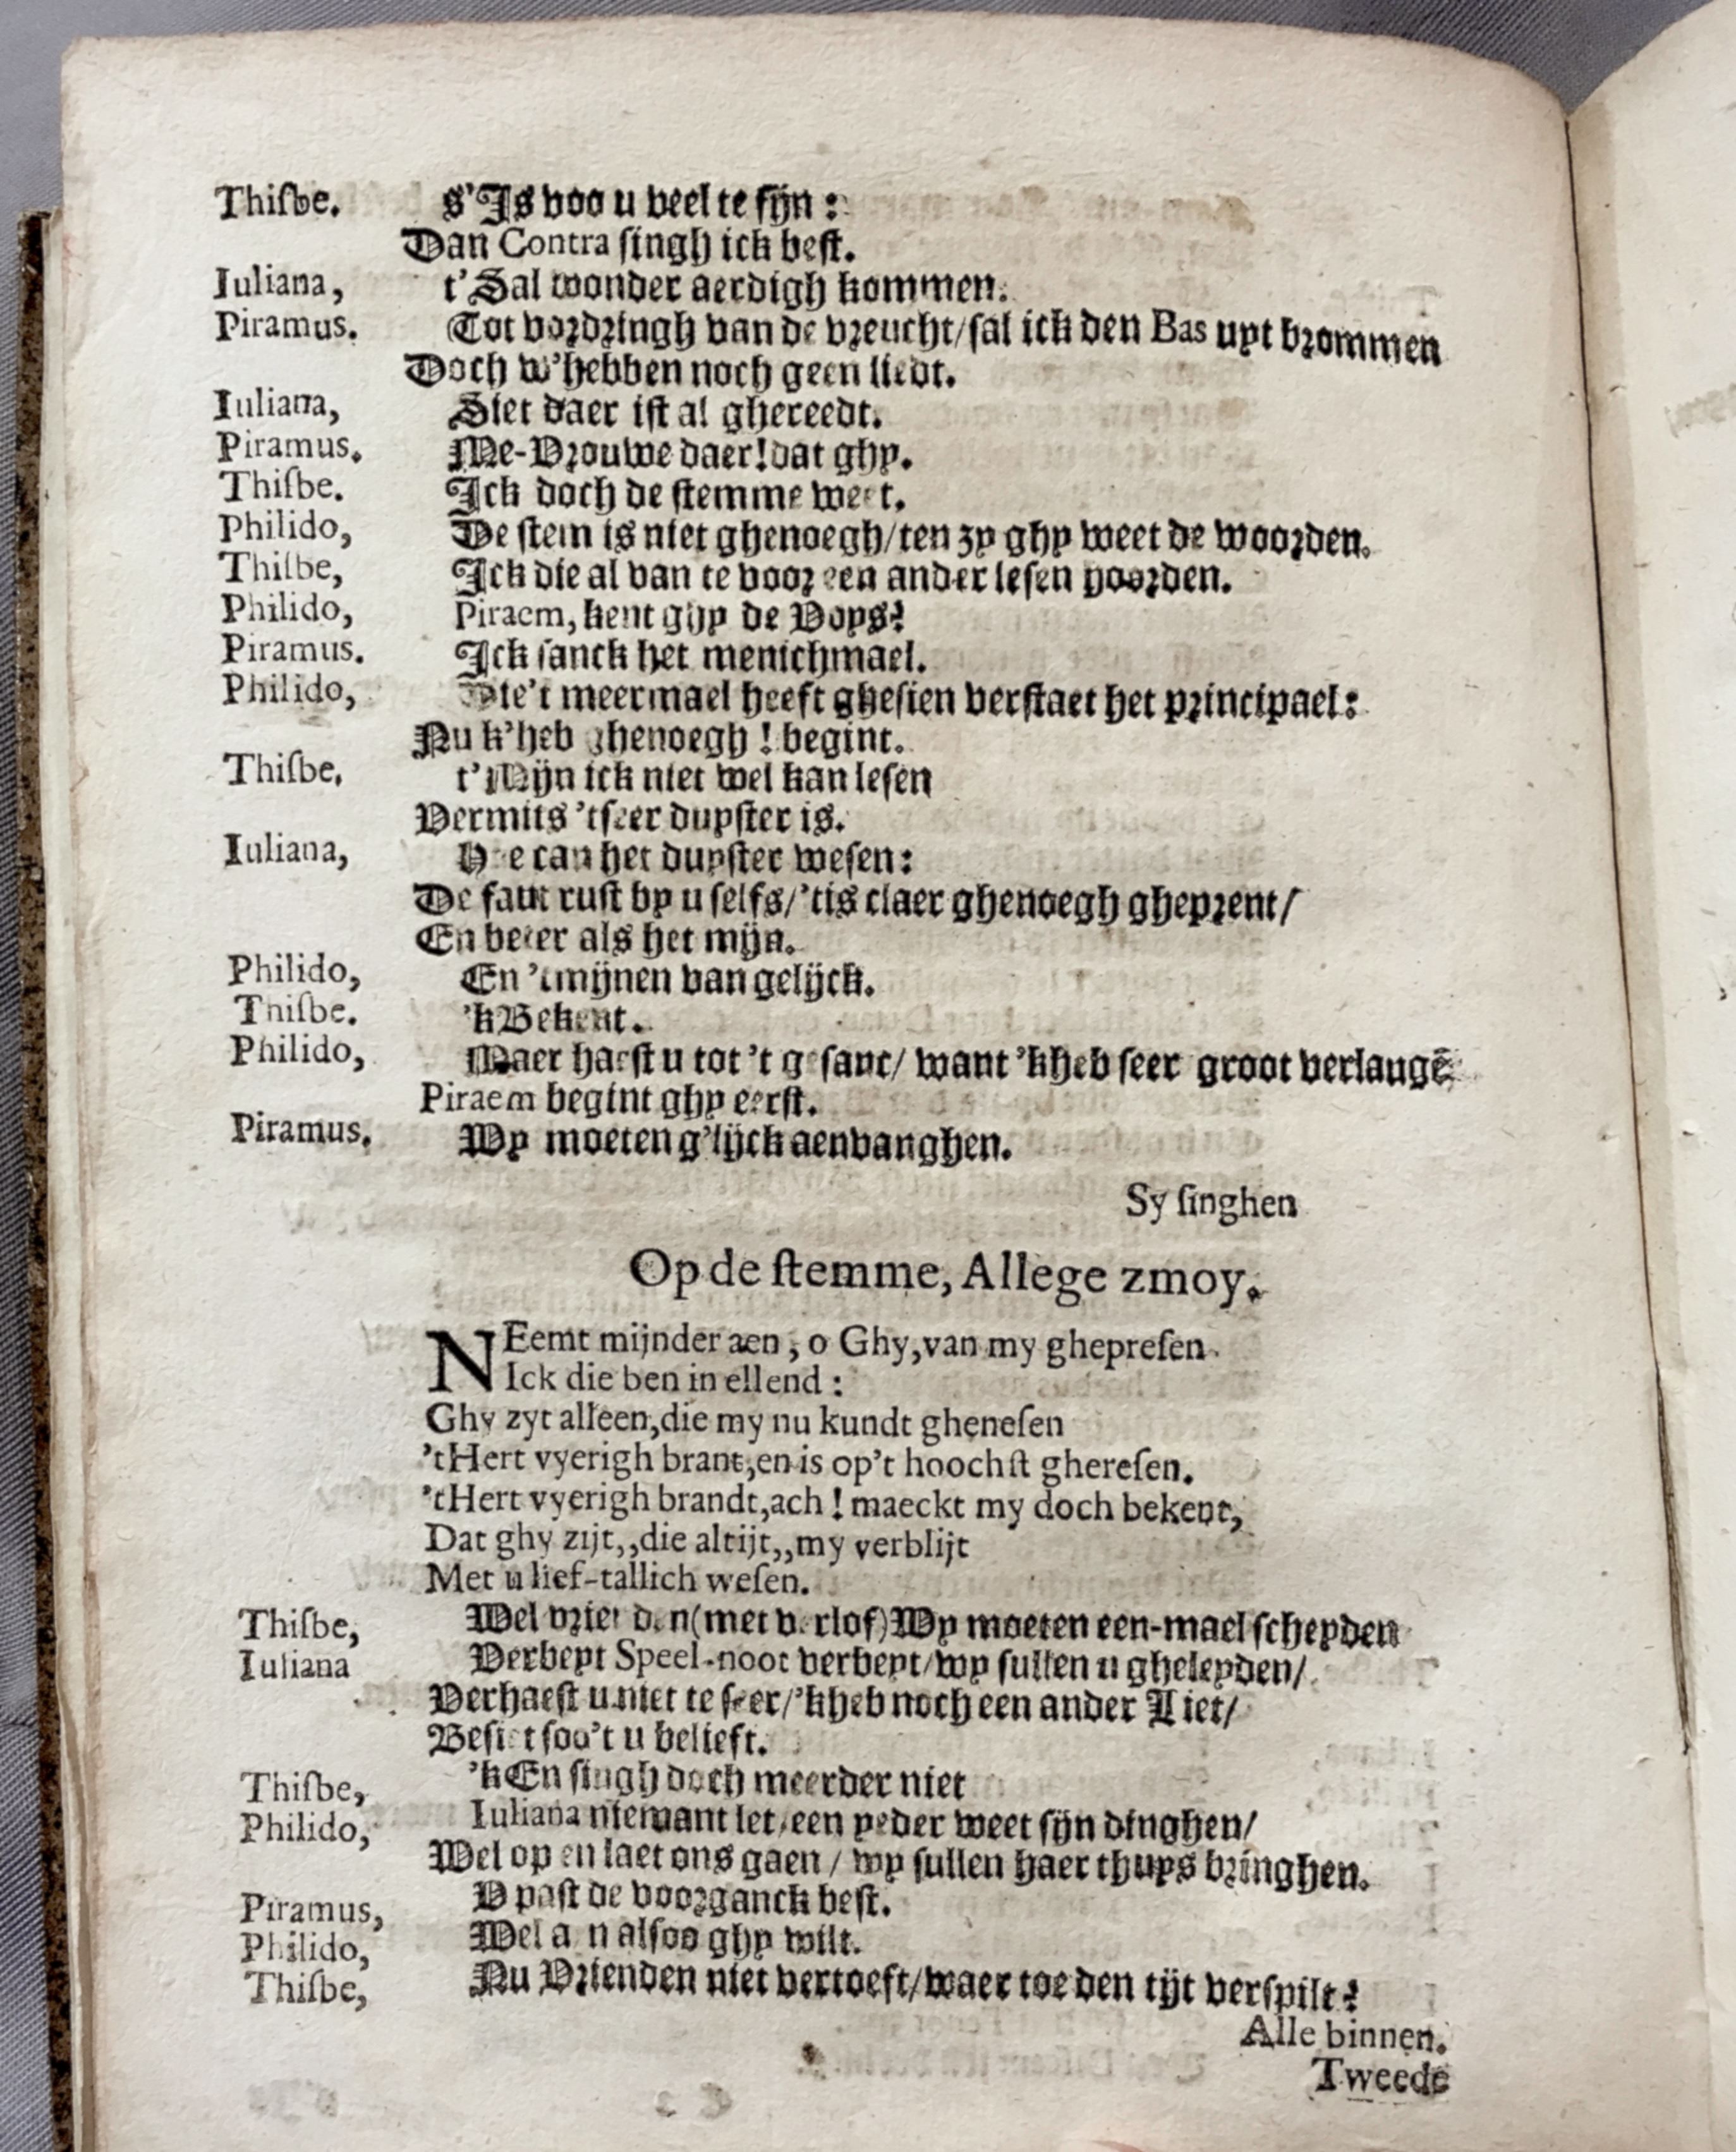 Thiſbe. s'Is voo u veel te ſijn:
Dan Contra ſingh ick beſt.
Iuliana, t'Sal wonder aerdigh kommen.
Piramus. Tot voꝛdꝛingh van de vꝛeucht/ſal ick den Bas uyt bꝛommen
Doch w'hebben noch geen liedt.
Iuliana, Siet daer iſt al ghereedt.
Piramus. Me-Vꝛouwe daer! dat ghy.
Thiſbe. Ick doch de ſtemme weet.
Philido, De ſtem is niet ghenoegh/ten zy ghy weet de wooꝛden.
Thiſbe, Ick die al van te vooꝛ een ander leſen hooꝛden.
Philido, Piraem, kent ghy de Voys?
Piramus. Ick ſanck het menichmael.
Philido, Die't meermael heeft gheſien verſtaet het pꝛincipael:
Nu k'heb ghenoegh! begint.
Thiſbe, t'Mijn ick niet wel kan leſen
Vermits 'tſeer duyſter is.
Iuliana, Hoe can het duyſter weſen:
De faut ruſt by u ſelfs/'tis claer ghenoegh ghepꝛent/
En beter als het mijn.
Philido, En 'tmijnen van gelijck.
Thiſbe. 'kBekent.
Philido, Maer haeſt u tot 't geſanc/ want 'kheb ſeer groot verlangē
Piraem begint ghy eerſt.
Piramus. Wy moeten g'lijck aenvanghen.
Sy ſinghen
Op de ſtemme, Allege zmoy.
NEemt mijnder aen, o Ghy, van my ghepreſen
Ick die ben in ellend:
Ghy zyt alleen, die my nu kundt gheneſen
'tHert vyerigh brant, en is op't hoochſt ghereſen.
'tHert vyerigh brandt, ach! maeckt my doch bekent,
Dat ghy zijt,,die altijt,,my verblijt
Met u lief-tallich weſen.
Thiſbe, Wel vꝛienden (met verlof) Wy moeten een-mael ſcheyden
Iuliana Verbeyt Speel-noot verbeyt/wy ſullen u gheleyden/
Verhaeſt u niet te ſeer/'kheb noch een ander Liet/
Beſiet ſoo't u belieft.
Thiſbe, 'kEn ſingh doch meerder niet
Philido, Iuliana niemant let/een yeder weet ſijn dinghen/
Wel op en laet ons gaen / wy ſullen haer thuys bꝛinghen.
Piramus, V paſt de vooꝛganck beſt.
Philido, Wel aen alſoo ghy wilt.
Thiſbe, Nu Vꝛienden niet vertoeft/waer toe den tijt verſpilt?
Alle binnen.
Tweede